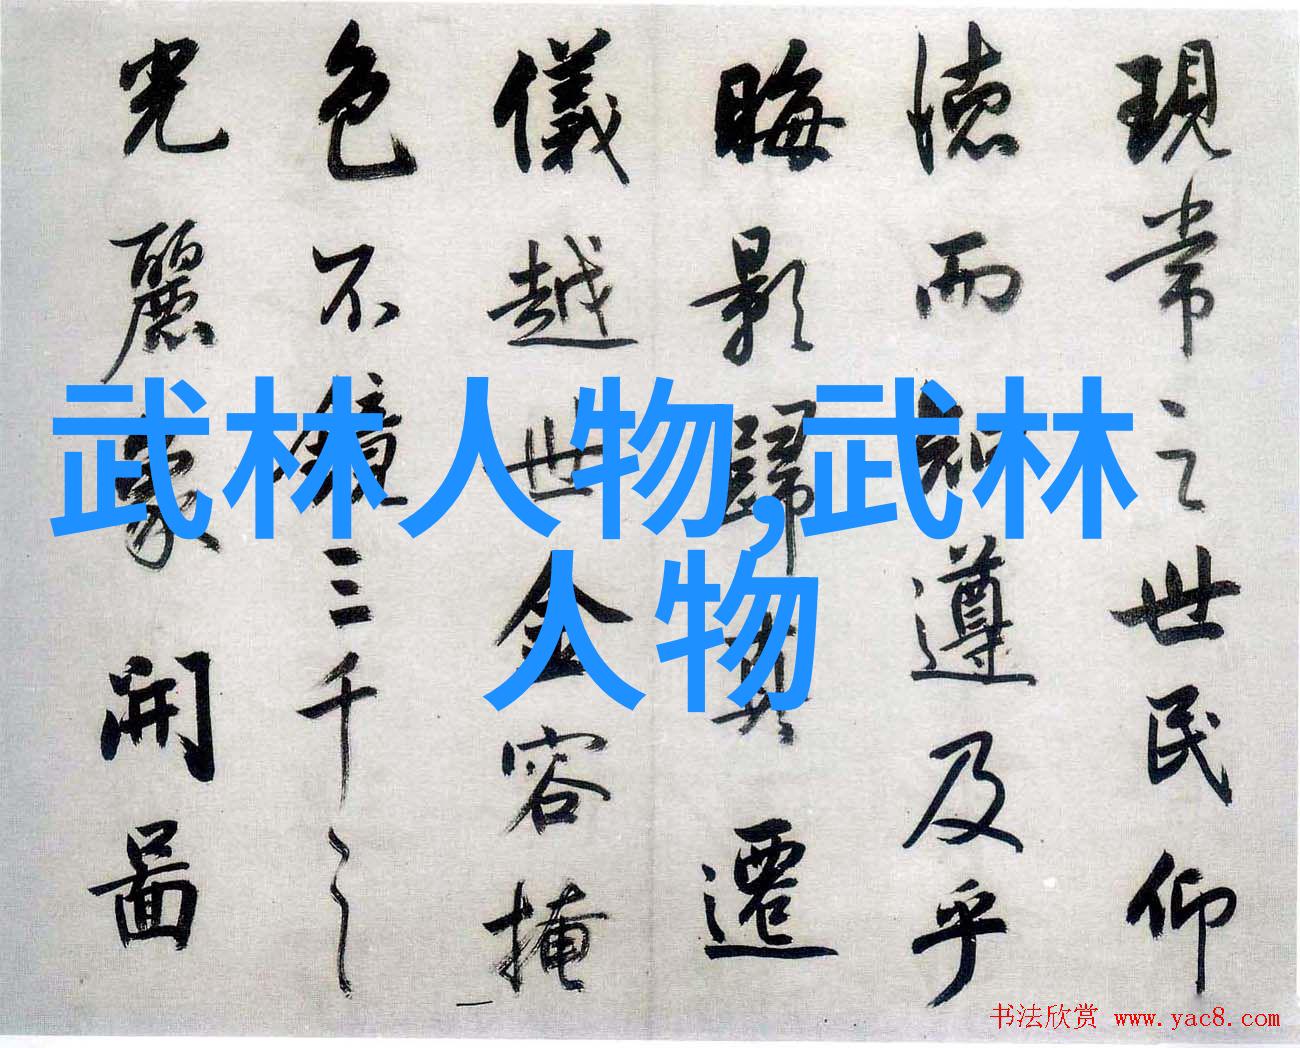 現常之世民仰
德而知遵及乎
晦影歸真遷
儀越世金容掩
色不鏡三千之
光麗象開圖
武林人物,武林
人物
书法欣赏 www.yac8.com